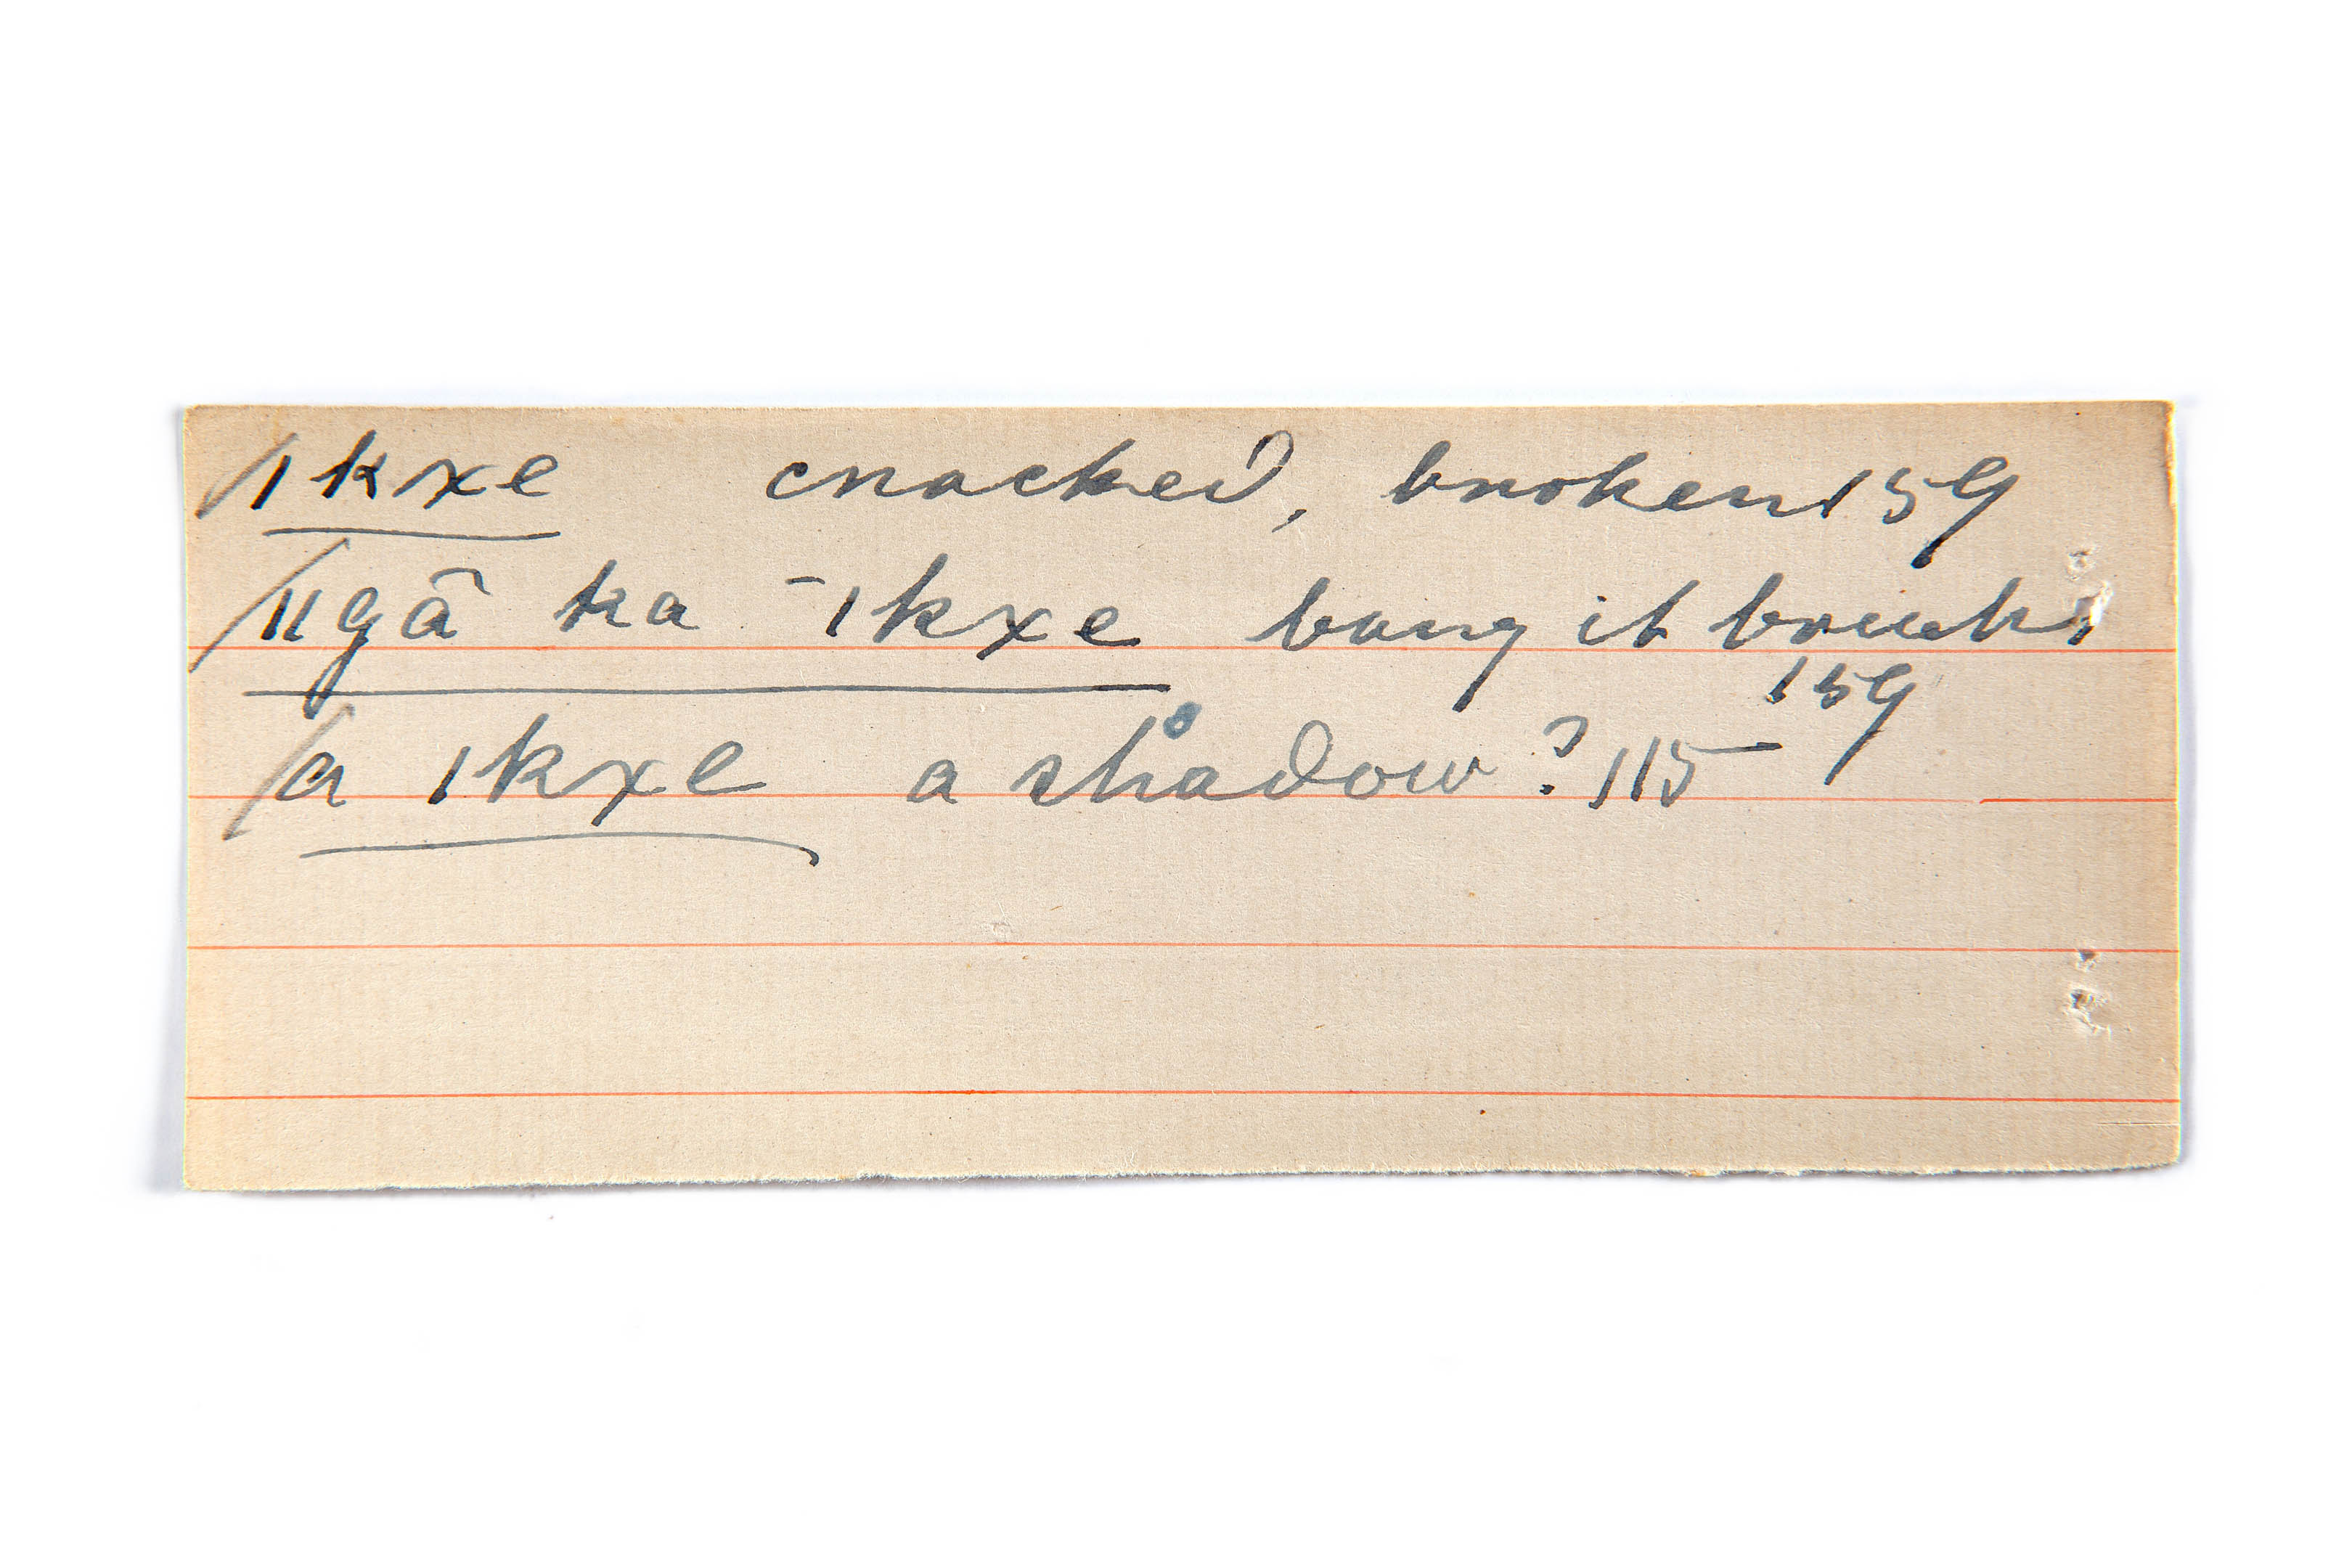 /ǀkxe cracked, broken 159
/ǁgā ka -ǀkxe bang it breaks
159
/a ǀkxe a shadow? 115